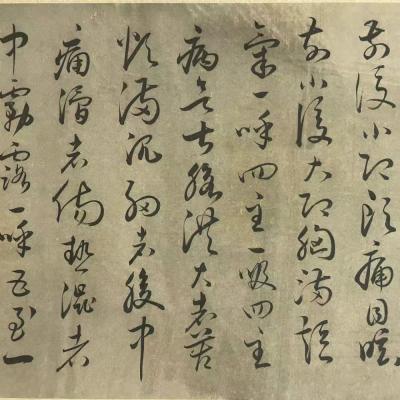 前後小即頭痛目眩
前小後大即胸滿短
氣一呼四至一吸四至
病欲甚脈洪大者苦
煩滿沉細者腹中
痛滑者傷熱澀者
中霧露一呼五至一